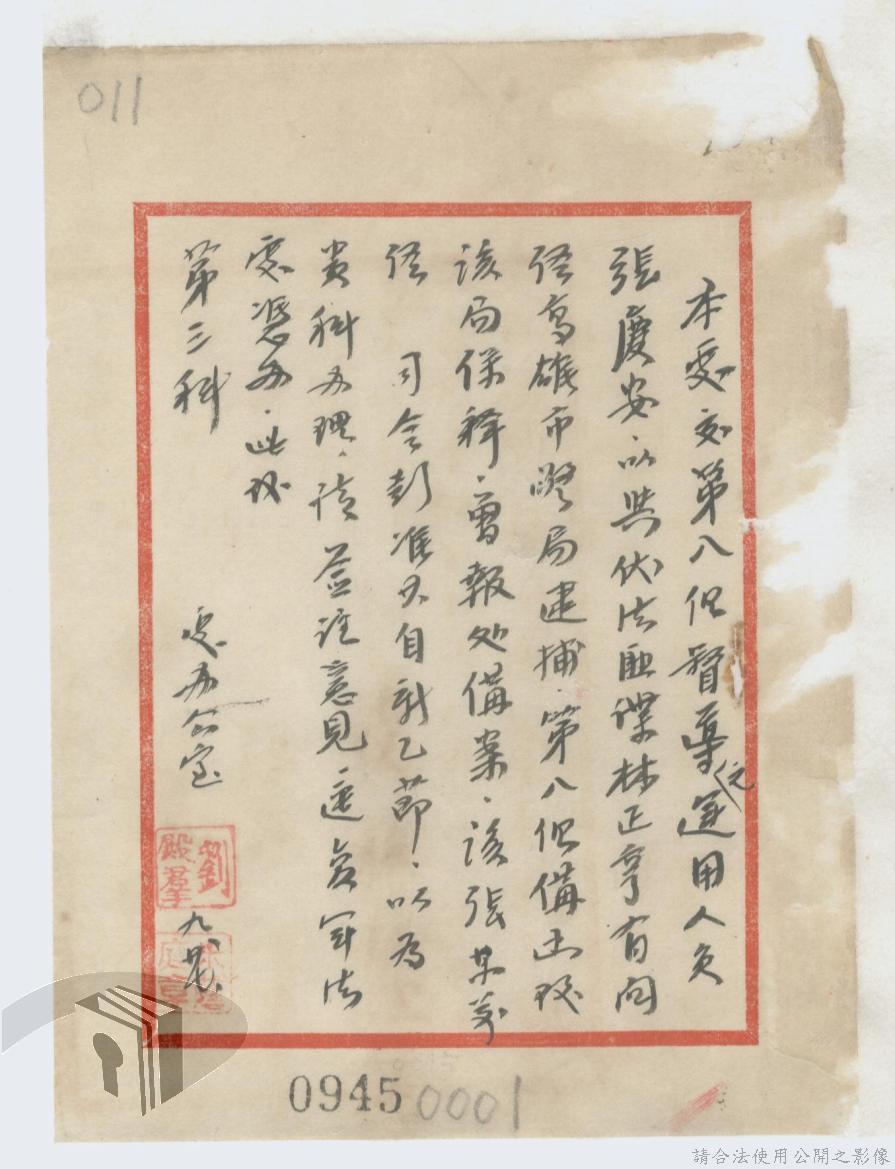 011
本處交第八組督導員運用人員
張慶安、以與伏法匪諜林正亨有關
經高雄市警局逮捕、第八組備函致
該局保釋、曾報处備案、該張某等
經 司令彭准予自新乙節、以為
貴科办理、請簽註意見、逕復軍法
處憑办、此致
第三科
處办公室
劉殿羣
0945 0001
請合法使用公開之影像